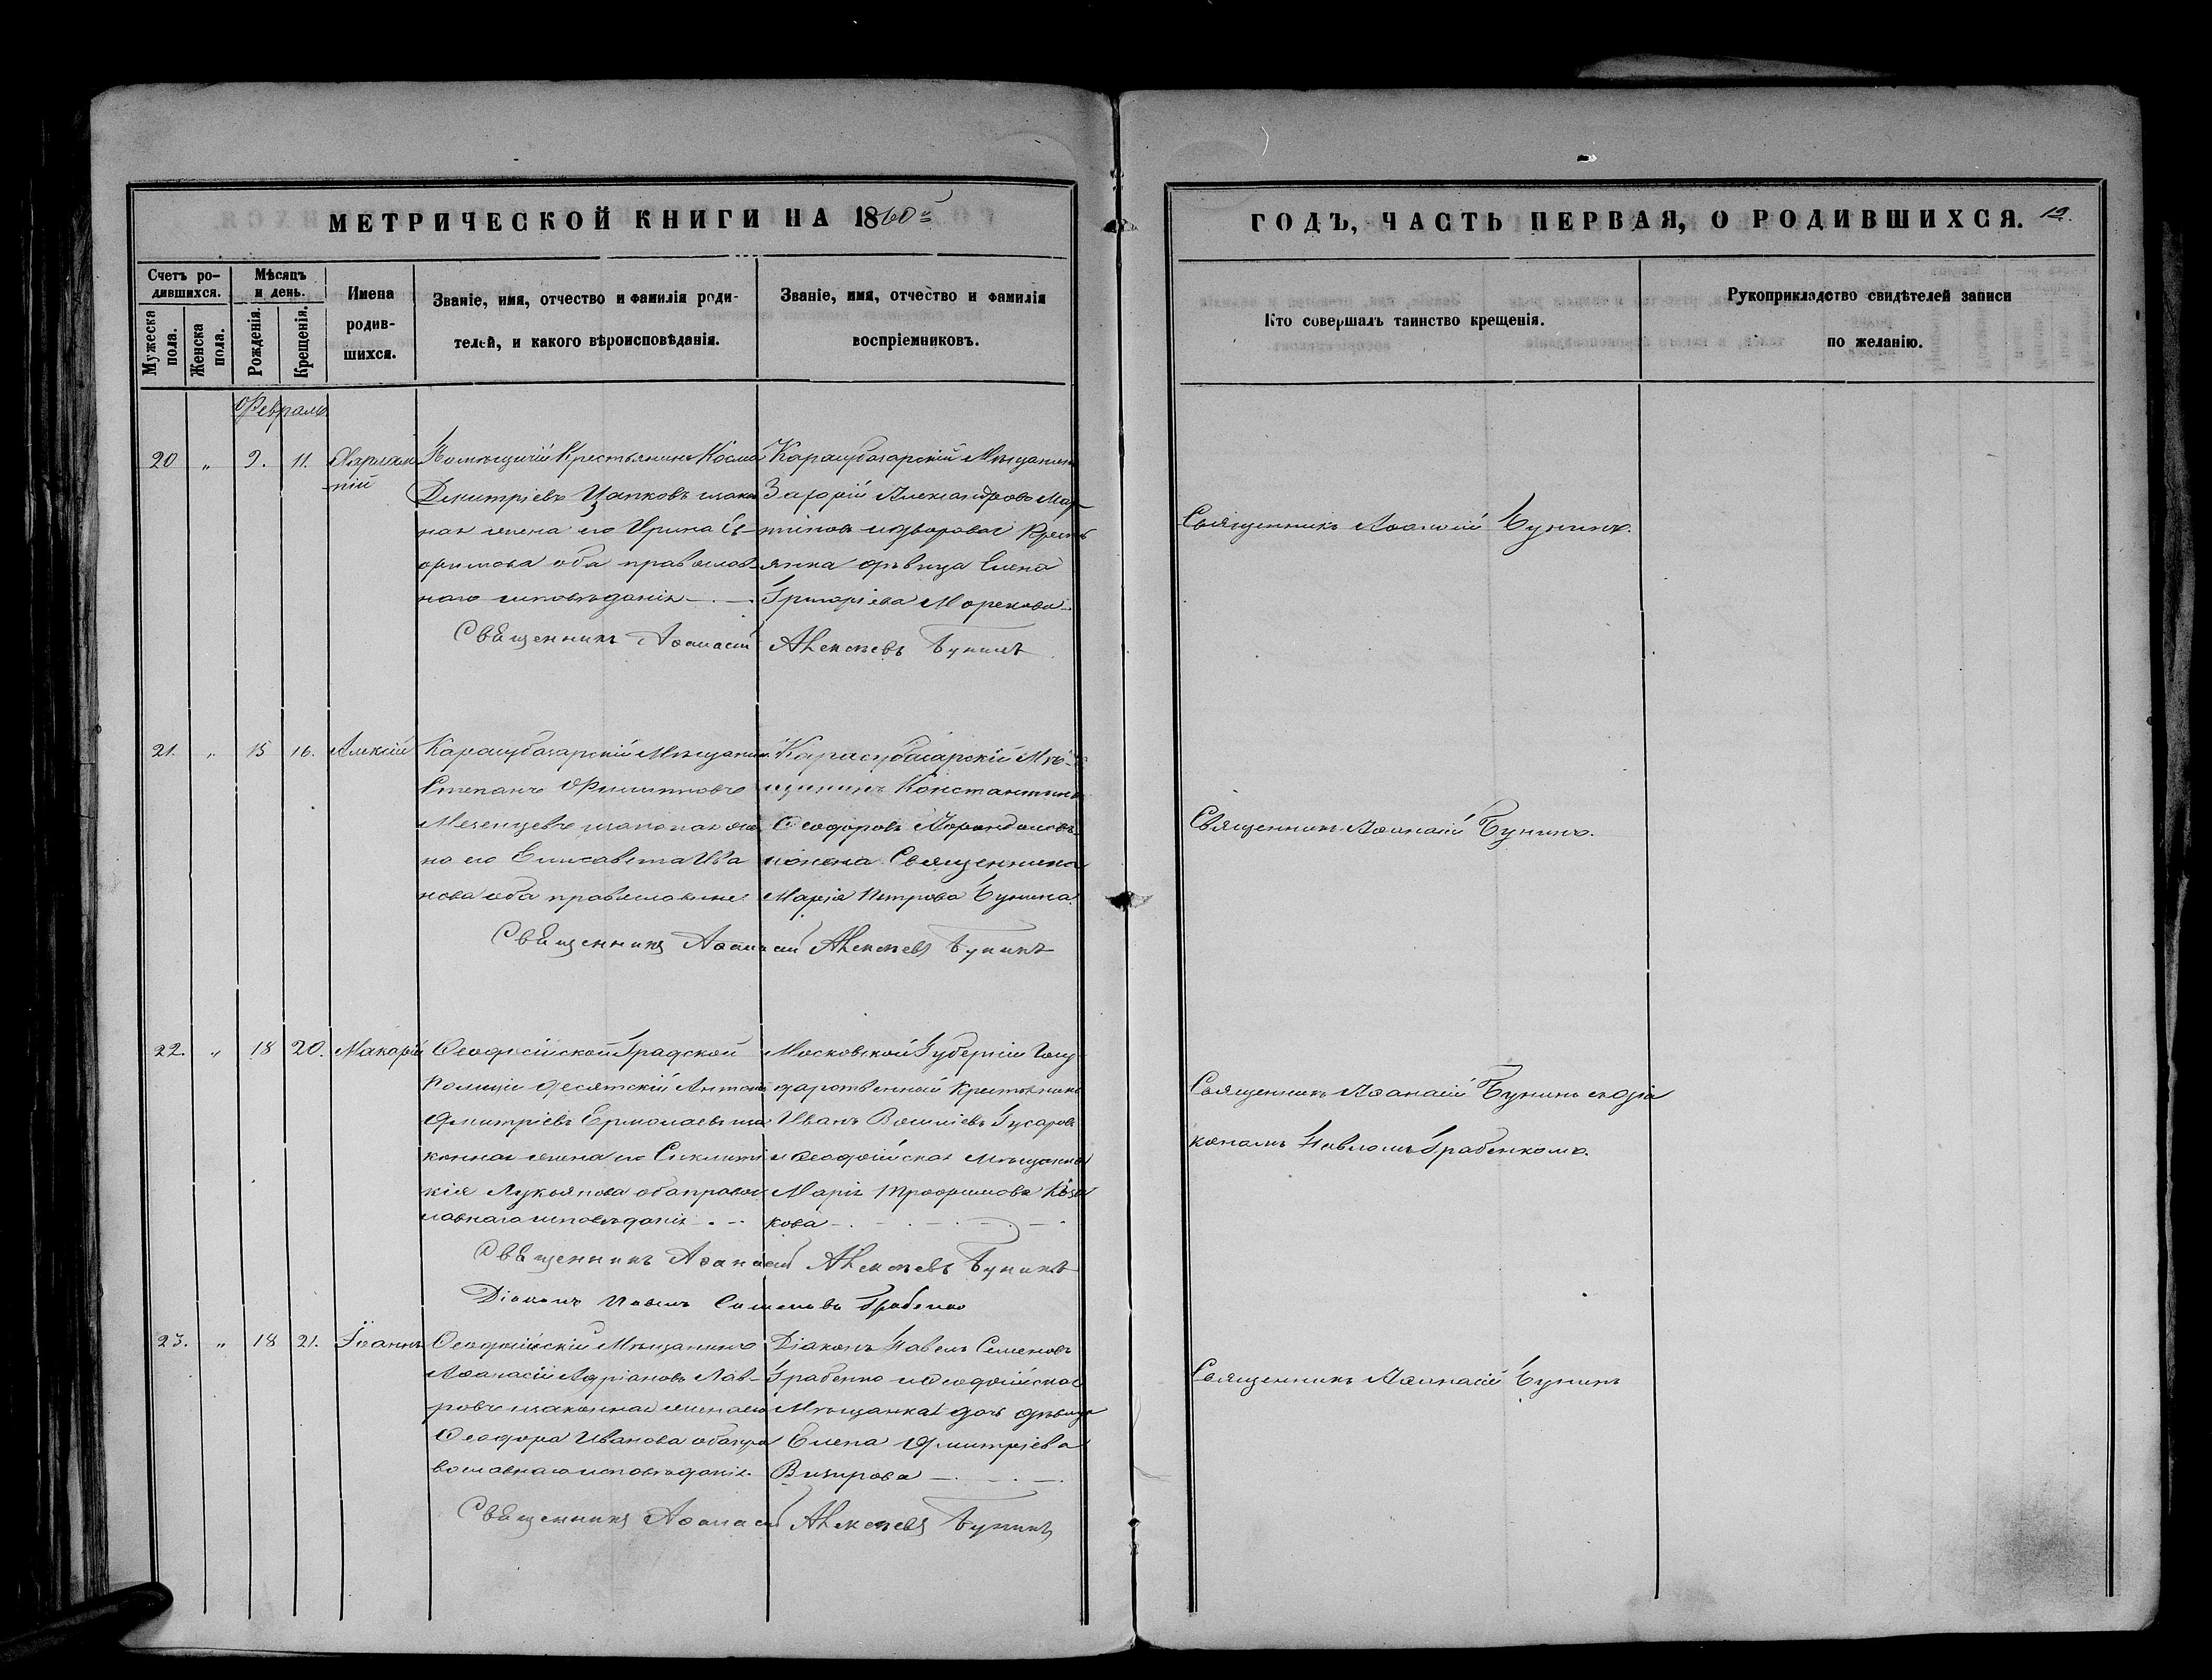 МЕТРИЧЕСКОЙ КНИГИ НА 1860й
ГОДЪ, ЧАСТЬ ПЕРВАЯ, О РОДИВШИХСЯ. 12.
Счетъ ро-
дившихся.
Мужеска
пола.
Женска
пола.
Мѣсяцъ
и день.
Рожденія.
Крещенія.
Имена
родив-
шихся.
Званіе, имя, отчество и фамилія роди-
телей, и какого вѣроисповѣданія.
Званіе, имя, отчество и фамилія
воспріемниковъ.
Кто совершалъ таинство крещенія.
Рукоприкладство свидѣтелей записи
по желанію.
Февраль
20 " 9. 11.
Помѣщичій Крестьянинъ Косма
Дмитріевъ Цапковъ изакон
ная жена его Ирина Ев-
фимова оба православ-
наго исповѣданія
Карасубазарскій Мѣщанинъ
Захарій Александровъ Мар-
тиновъ идворовая Кресть
янка дѣвица Елена
Григоріева Морекова
Священникъ Аѳанасій Алексѣевъ Бунинъ
Священникъ Аѳанасій Бунинъ.
21. " 15 16. Алексій
Карасубазарскій Мѣщанин
Степанъ Филипповъ
Мезенцевъ изаконная же
на его Елисавета Ива
нова оба православные
Карасубазарскій Мѣ-
щанинъ Константинъ
Ѳеодоровъ
ижена Священника
Марія Петрова Бунина.
Священникъ Аѳанасій Алексѣевъ Бунинъ
Священникъ Аѳанасій Бунинъ.
22. " 18 20. Макарій
Ѳеодосійской Градской
Полиціи десятскій Антонъ
Дмитріевъ Ермолаевъ иза
конная жена его Синклити
кія Лукьянова оба право
славнаго исповѣданія
Московской Губерніи Госу
дарственный Крестьянинъ
Иванъ Василіевъ Гусаровъ
и Ѳеодосійская Мѣщанка
Марія Трофимова Коза
кова
Священникъ Аѳанасій Алексѣевъ Бунинъ
Діаконъ Павелъ Семеновъ Грабенко
Священникъ Аѳанасій Бунинъ съ діа
кономъ Павломъ Грабенкомъ.
23. " 18 21. Іоаннъ
Ѳеодосійскій Мѣщанинъ
Аѳанасій Адріановъ Лав-
ровъ изаконная жена его
Ѳеодора Иванова оба пра
вославнаго исповѣданія.
Діаконъ Павелъ Семеновъ
Грабенко и Ѳеодосійская
Мѣщанка дочь дѣвица
Елена Дмитріева
Визирова
Священникъ Аѳанасій Алексѣевъ Бунинъ
Священникъ Аѳанасій Бунинъ